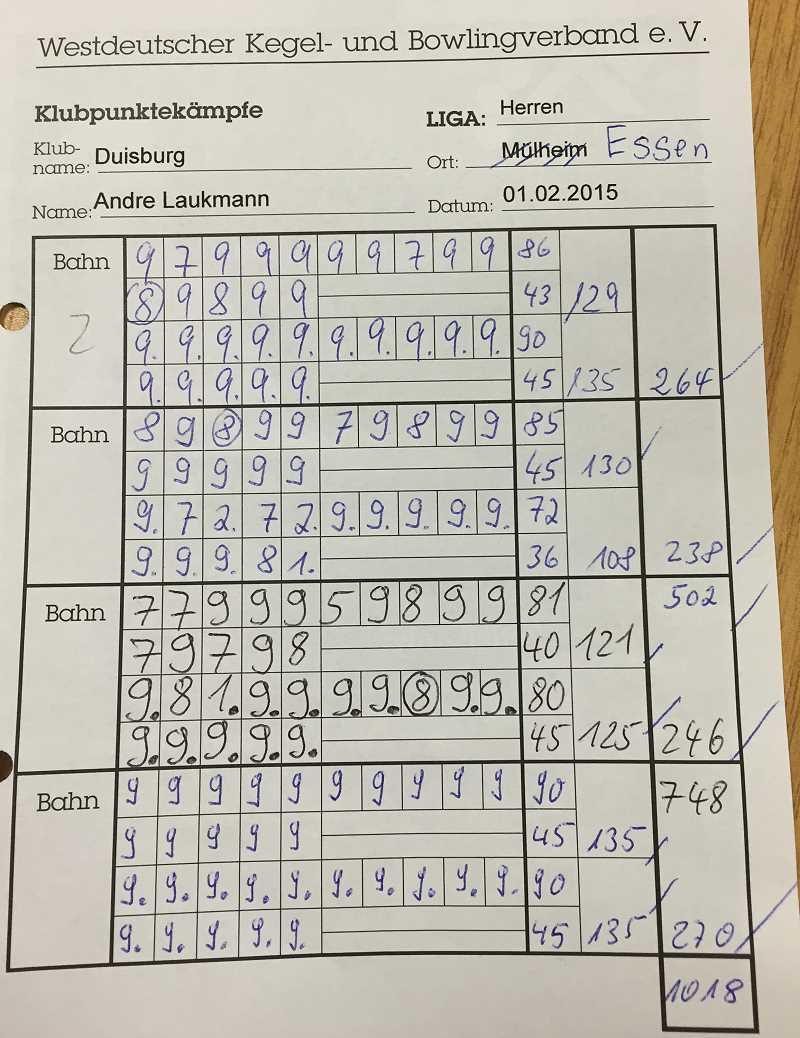 Westdeutscher Kegel- und Bowlingverband e. V.
Klubpunktekämpfe LIGA: Herren
Klub-
name: Duisburg Ort: Mülheim Essen
Name: Andre Laukmann Datum: 01.02.2015
Bahn 9 7 9 9 9 9 9 7 9 9 86
8 9 8 9 9 43 129
2 9. 9. 9. 9. 9. 9. 9. 9. 9. 9. 90
9. 9. 9. 9. 9. 45 135 264
Bahn 8 9 8 9 9 7 9 8 9 9 85
9 9 9 9 9 45 130
9. 7 2. 7 2. 9. 9. 9. 9. 9. 72
9. 9. 9. 8 1. 36 108 238
Bahn 7 7 9 9 9 5 9 8 9 9 81 502
7 9 7 9 8 40 121
9. 8 1. 9. 9. 9. 9. 8 9. 9. 80
9. 9. 9. 9. 9. 45 125 246
Bahn 9 9 9 9 9 9 9 9 9 9 90 748
9 9 9 9 9 45 135
9. 9. 9. 9. 9. 9. 9. 9. 9. 9. 90
9. 9. 9. 9. 9. 45 135 270
1018